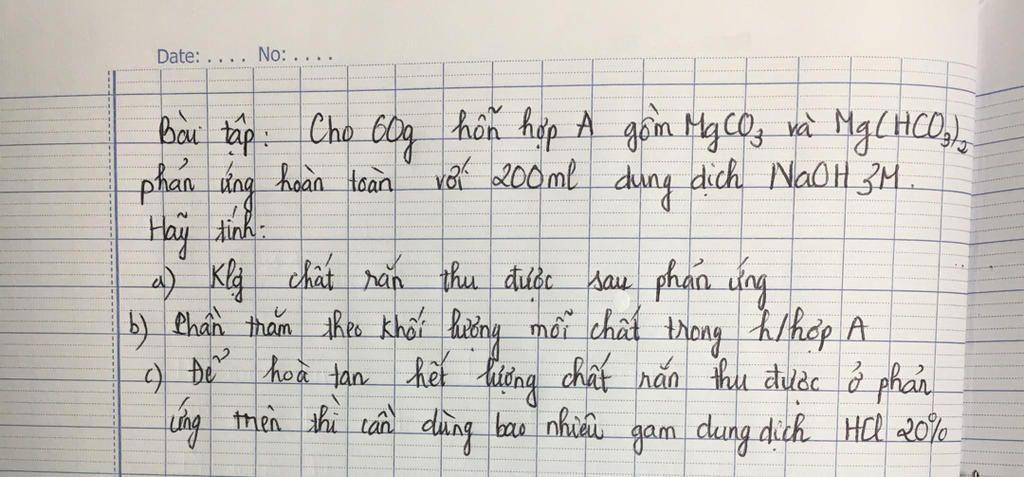 Date: .... No: ....
Bài tập: Cho 60g hỗn hợp A gồm MgCO₃ và Mg(HCO₃)₂
phản ứng hoàn toàn với 200ml dung dịch NaOH 3M.
Hãy tính:
a) Klg chất rắn thu được sau phản ứng
b) Phần trăm theo khối lượng mỗi chất trong h/hợp A
c) Để hoà tan hết lượng chất rắn thu được ở phản
ứng trên thì cần dùng bao nhiêu gam dung dịch HCl 20%